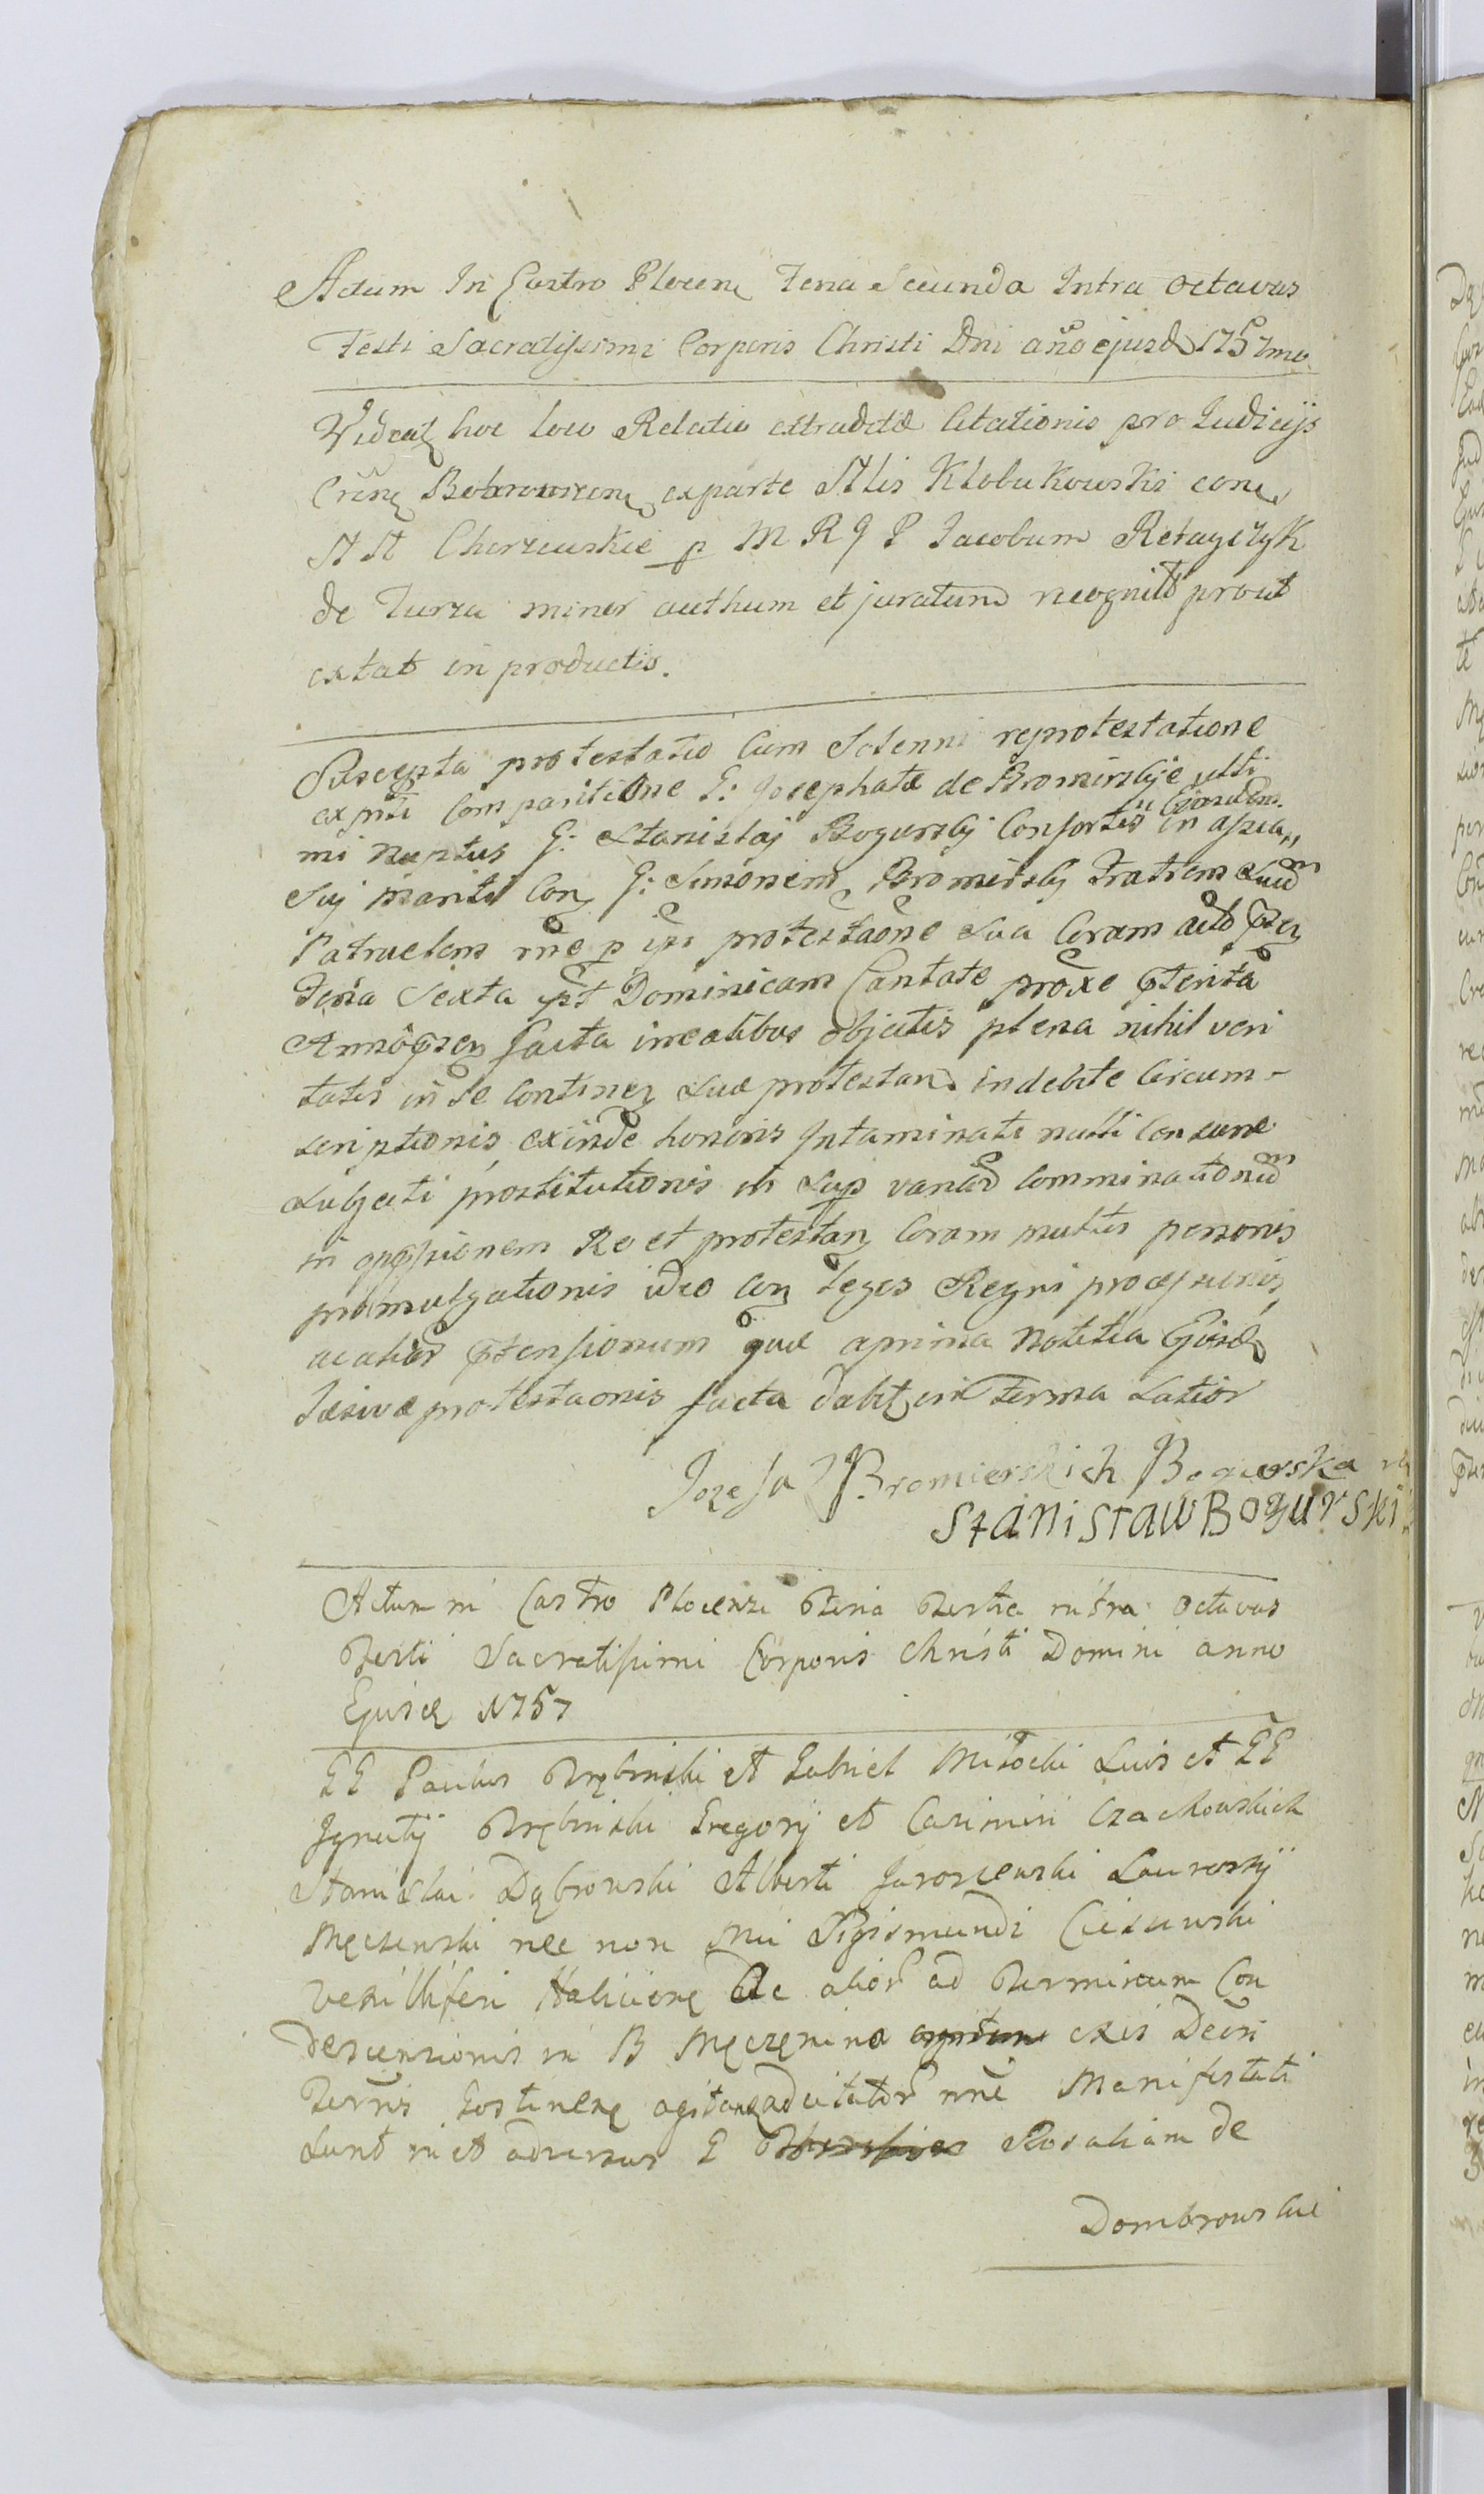 Actum In Castro Plocen Feria Secunda Intra octavas
Festi Sacratissimi Corporis Christi Dni año ejusd 1757mo
Videat hoc loco Relatio extraditæ Citationis pro Judicijs
exparte Mlis Klobukowski con
M M Chorzewskie p M R J P Jacobum Retayczyk
de Turza minor authum et juratum recognit prout
extat in productis.
Suscepta protestatio Cum Solenni reprotestatione
ex pñti Comparitione G: Josephatæ de Bromirskije ulti
mi nuptus G: Stanislaj Bogurskj Consortis in assia,,
,, Ejusdem.
Suj mariti Con G: Simonem Bromirskj Fratrem Suum
Patruelem rñe p ipi protestaõne Sua Coram actõ
Feria Sexta pt Dominicam Cantate proxe pterita
Anno facta irreatibus objectis plena nihil veri
tatis in se Continen Suæ protestan indebite Circum-
scriptionis exinde honoris Intaminati nulli Censuræ
Subjecti prostitutionis in Sup variar Comminationum
in oppssionem Re et protestan Coram multis personis
promulgationis ideo Con Leges Regni processionis
ac alior ptensionum quæ a prima Notitia Ejusd
Læsivæ protestaonis facta dabit in Termo Latior
Jozefa z Bromierskich Bogurska
Stanisław Bogurski
Actum in Castro Plocensi Feria Tertia intra Octavas
Festi Sacratissimi Corporis Christi Domini anno
Ejusd 1757
GG Paulus Trębinski et Gabriel Miłocki Suis et GG
Ignatij Trębinski Gregorij et Casimiri Czachowskich
Stanislai Dąbrowski Alberti Jaroszewski Laurentij
Męczenski nec non Mci Sigismundi Cieszewski
Vexilliferi Halicien Ac alior ad Terminum Con
descensionis in B Męczenino exis Decri
Terris Gostinen agitan adcitator nñe Manifestati
Sunt in et adversus G Rosaliam de
Dombrowskie